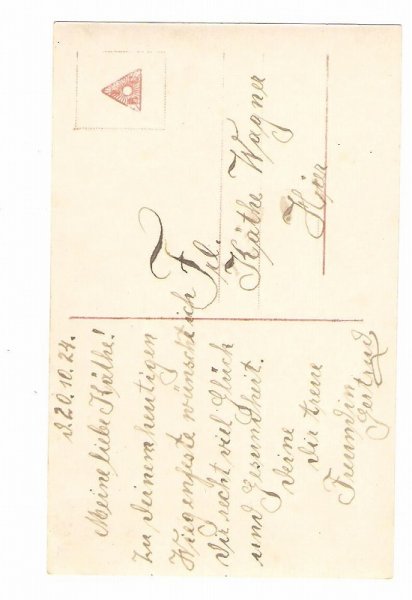 d. 20. 10. 24.
Meine liebe Käthe!
Zu Deinem heutigen
Wiegenfeste wünscht ich
Dir recht viel Glück
und Gesundheit.
Deine
Dir treue
Freundin
Gertrud
Frl.
Käthe Wagner
Hier